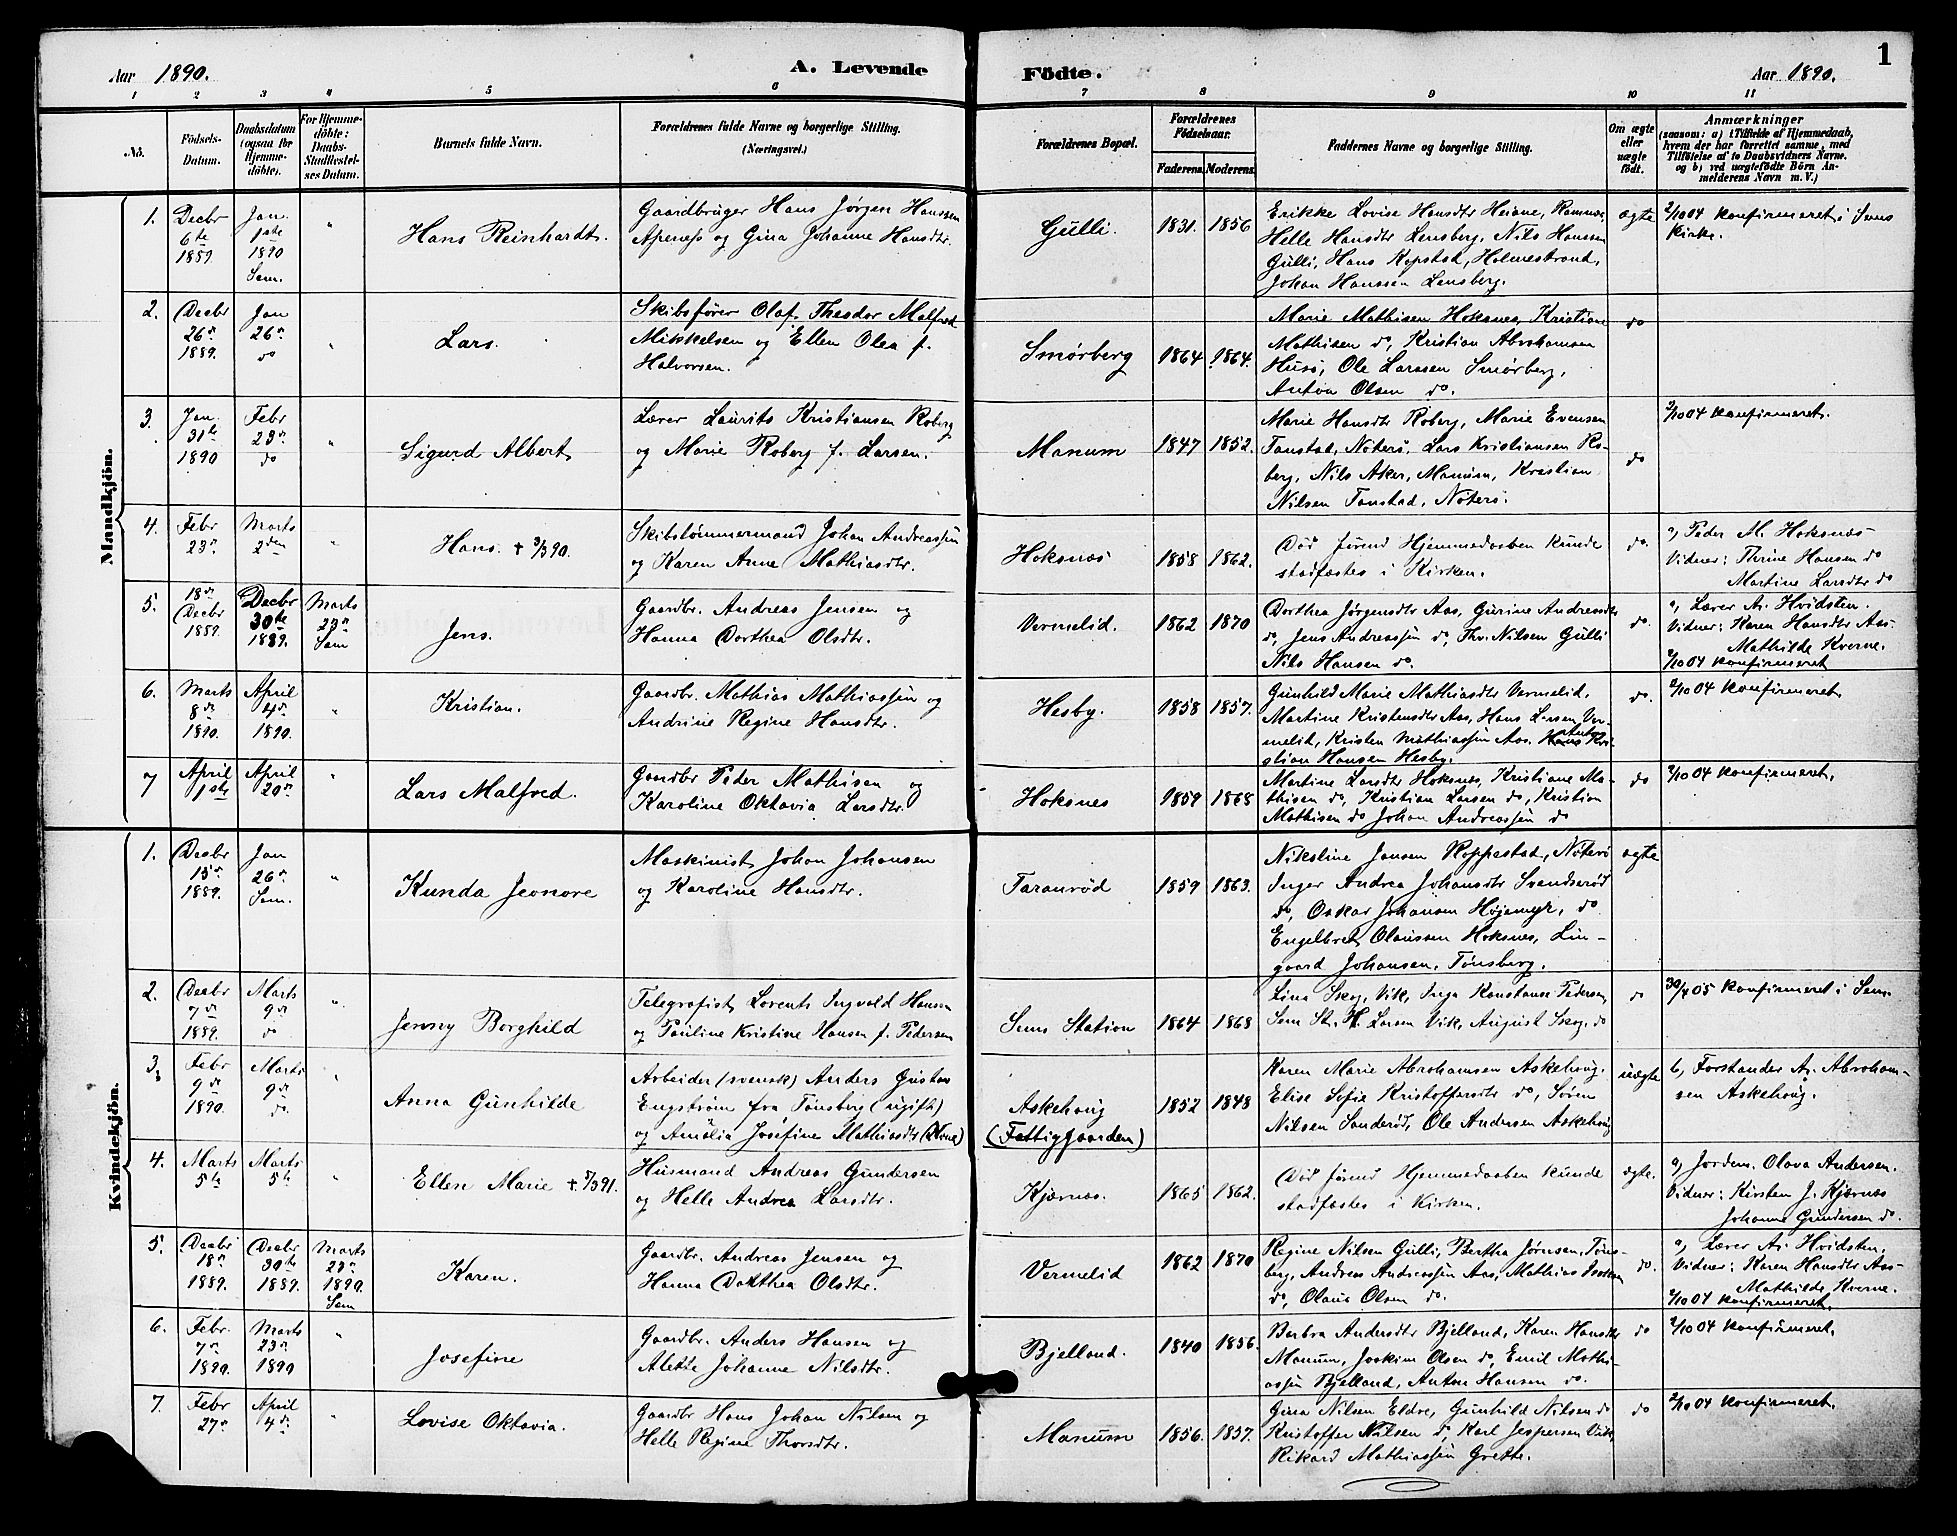 1
Aar 1890.
A. Levende
Födte.
Aar 1890.
1 2 3 4 5 6 7 8 9 10 11
No.
Födsels-
Datum.
Daabsdatum
(ogsaa for
Hjemme-
döbte).
For Hjemme-
döbte:
Daabs-
Stadfæstel-
ses Datum.
Barnets fulde Navn.
Forældrenes fulde Navne og borgerlige Stilling.
(Næringsvei.)
Forældrenes Bopæl.
Forældrenes
Födselsaar.
Faderens.
Moderens.
Faddernes Navne og borgerlige Stilling.
Om ægte
eller
uægte
födt.
Anmærkninger
(saasom: a) i Tilfælde af Hjemmedaab,
hvem der har forrettet samme, med
Tilföielse af to Daabsvidners Navne.
og b) ved uægtefödte Börn An-
melderens Navn m. V.)
Mandkjön.
1.
Decbr
6te
1889.
Jan.
1ste
1890
Sem.
"
Hans Reinhardt.
Gaardbruger Hans Jørgen Hanssen
Apenæss og Gina Johanne Hansdtr.
Gulli.
1831. 1856
Erikke Lovise Hansdtr Heiane, Ramnæs
Helle Hansdtr Lensberg, Nils Hanssen
Gulli, Hans Kopstad, Holmestrand,
Johan Hanssen Lensberg.
ægte
2/10 04 konfirmeret i Sems
Kirke.
2.
Decbr
26de
1889.
Jan
26de
do
"
Lars.
Skibsfører Olaf Theodor Malfred
Mikkelsen og Ellen Olea f.
Halvorsen.
Smørberg
1864 1864.
Marie Mathisen Hoksnes, Kristiane
Mathisen do, Kristian Abrahamsen
Husø, Ole Larssen Smørberg,
Anton Olsen do.
do
3.
Jan.
31te
1890
Febr
23de
do
"
Sigurd Albert
Lærer Laurits Kristiansen Roberg
og Marie Roberg f. Larsen.
Manum
1847 1852.
Marie Hansdtr Roberg, Marie Evensen
Tanstad, Nøterø, Lars Kristiansen Ro-
berg, Nils Aker, Manum, Kristian
Nilsen Tanstad, Nøterø.
do
2/10 04 konfirmeret.
4.
Febr
23de
Marts
2den
"
Hans. + 3/3 90.
Skibstømmermand Johan Andreassen
og Karen Anne Mathiasdtr.
Hoksnæs
1858 1862.
Død førend Hjemmedaaben kunde
stadfæstes i Kirken.
do.
a, Peder M. Hoksnæs
Vidner: Thrine Hansen do
Martine Larsdtr do
5.
18de
Decbr
1889.
Decbr
30te
1889.
Marts
23de
Sem
Jens.
Gaardbr. Andreas Jensen og
Hanna Dorthea Olsdtr.
Vermelid.
1862 1870
Dorthea Jørgensdtr Aas, Gurine Andreasdtr
do, Jens Andreassen do, Thv. Nilsen Gulli
Nils Hansen do.
do.
a, Lærer A. Hvidsten.
Vidner: Karen Hansdtr Aas.
Mathilde Kverne.
2/10 04 konfirmeret
6.
Marts
8de
1890.
April
4de
1890.
"
Kristian.
Gaardbr. Mathias Mathiassen og
Andrine Regine Hansdtr.
Hesby.
1858 1857.
Gunhild Marie Mathiasdtr Vermelid,
Martine Kristensdtr Aas, Hans Larsen Ver-
melid, Kristen Mathiassen Aas, Anton Kri-
stian Hansen Hesby.
do.
2/10 04 konfirmeret.
7
April
1ste
April
20de
"
Lars Malfred.
Gaardbr Peder Mathisen og
Karoline Oktavia Larsdtr.
Hoksnes
1859 1868
Martine Larsdtr Hoksnes, Kristiane Ma-
thisen do, Kristian Larsen do, Kristian
Mathisen do Johan Andreassen do
do
2/10 04 konfirmeret.
Kvindekjön.
1.
Decbr
15de
1889.
Jan
26de
Sem.
"
Kunda Jeonore
Maskinist Johan Johansen
og Karoline Hansdtr.
Taranrød
1859 1863.
Nikoline Jansen Koppestad, Nøterø
Inger Andrea Johansdtr Svendserød
do, Oskar Johansen Højemyr, do
Engelbret Olaussen Hoksnes, Lin-
gaard Johansen, Tønsberg.
ægte
2.
Decbr
7de
1889.
Marts
9de
do
"
Jenny Borghild
Telegrafist Lorents Ingvald Hansen
og Pauline Kristine Hansen f. Pedersen
Sems Station
1864 1868
Lina Skog, Vik, Inga Konstanse Pedersen,
Sem St. H. Larsen Vik, August Skog, do
do
30/4 05 konfirmeret i Sem.
3.
Febr
9de
1890.
Marts
9de
do.
"
Anna Gunhilde
Arbeider (svensk) Anders Gustav
Engstrøm fra Tønsberg (ugift)
og Amalia Josefine Mathiasdtr
Askehoug
(Fattiggaarden)
1852 1848
Karen Marie Abrahamsen Askehoug.
Elise Sofie Kristoffersdtr do, Søren
Nilsen Sanderød, Ole Andersen Askehoug
uægte
b, Forstander A. Abraham-
sen Askehoug.
4.
Marts
5te
Marts
5te
"
Ellen Marie +
Husmand Andreas Gundersen
og Helle Andrea Larsdtr.
Kjærnæs.
1865 1862.
Død førend Hjemmedaaben kunde
stadfæstes i Kirken.
ægte.
a, Jordem. Olava Andersen.
Vidner: Kirsten J. Kjærnæs
Johanne Gundersen do.
5.
Decbr
18de
1889.
Decbr
30te
1889.
Marts
23de
1890.
Sem
Karen.
Gaardbr. Andreas Jensen og
Hanna Dorthea Olsdtr.
Vermelid
1862 1870
Regine Nilsen Gulli, Bertha Jørnsen, Tøns-
berg, Andreas Andreassen Aas, Mathias Isaksen
do, Olaus Olsen do.
do.
a, Lærer A. Hvidsten.
Vidner: Karen Hansdtr Aas
Mathilde Kverne.
2/10 04 konfirmeret.
6.
Febr.
7de
1890.
Marts
23de
1890
"
Josefine
Gaardbr. Anders Hansen og
Alette Johanne Nilsdtr.
Bjelland.
1840 1856.
Barbra Andersdtr Bjelland, Karen Hansdtr
Manum, Joakim Olsen do, Emil Mathi-
assen Bjelland, Anton Hansen do.
do
2/10 04 konfirmeret.
7.
Febr
27de
April
4de
"
Lovise Oktavia.
Gaardbr Hans Johan Nilsen og
Helle Regine Thorsdtr.
Manum
1856. 1857.
Gina Nilsen Eldre, Gunhild Nilsen do
Kristoffer Nilsen do, Karl Jespersen Vik,
Rikard Mathiassen Grette.
do
2/10 04 konfirmeret.